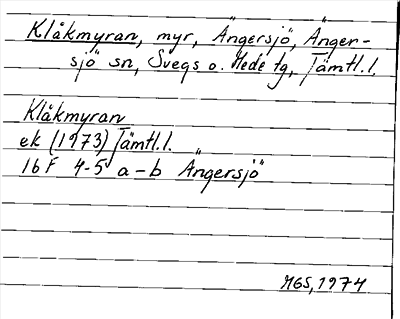 Klåkmyran, myr, Ängersjö, Änger-
sjö sn, Svegs o. Hede tg, Jämtl.l.
Klåkmyran
ek (1973) Jämtl.l.
16F 4-5 a-b Ängersjö
MGS, 1974